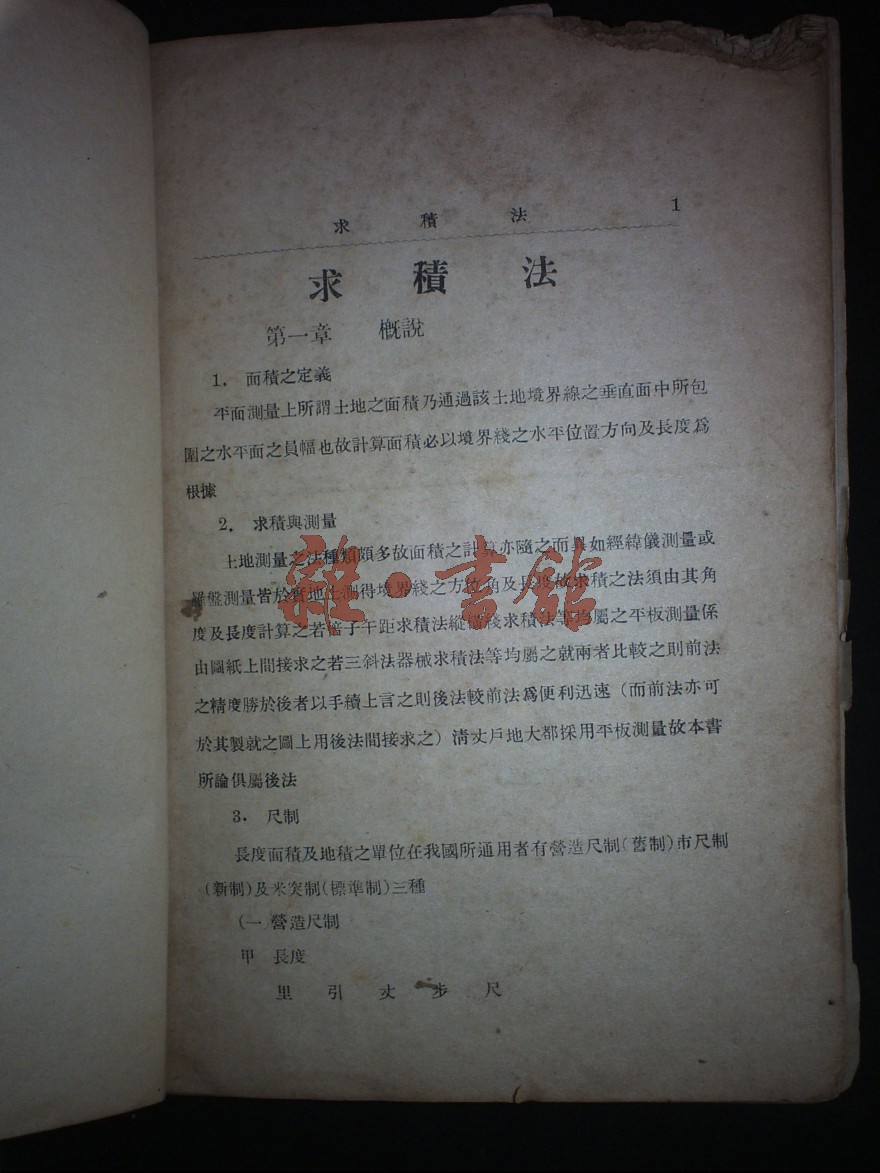 求積法 1
求積法
第一章 概說
1. 面積之定義
平面測量上所謂土地之面積乃通過該土地境界線之垂直面中所包
圍之水平面之員幅也故計算面積必以境界綫之水平位置方向及長度爲
根據
2. 求積與測量
土地測量之法種類頗多故面積之計算亦隨之而異如經緯儀測量或
羅盤測量皆於實地上測得境界綫之方位角及長度故求積之法須由其角
度及長度計算之若倍子午距求積法縱橫綫求積法等均屬之平板測量係
由圖紙上間接求之若三斜法器械求積法等均屬之就兩者比較之則前法
之精度勝於後者以手續上言之則後法較前法爲便利迅速(而前法亦可
於其製就之圖上用後法間接求之)清丈戶地大都採用平板測量故本書
所論俱屬後法
3. 尺制
長度面積及地積之單位在我國所通用者有營造尺制(舊制)市尺制
(新制)及米突制(標準制)三種
(一 營造尺制
甲 長度
里 引 丈 步 尺
雜·書館